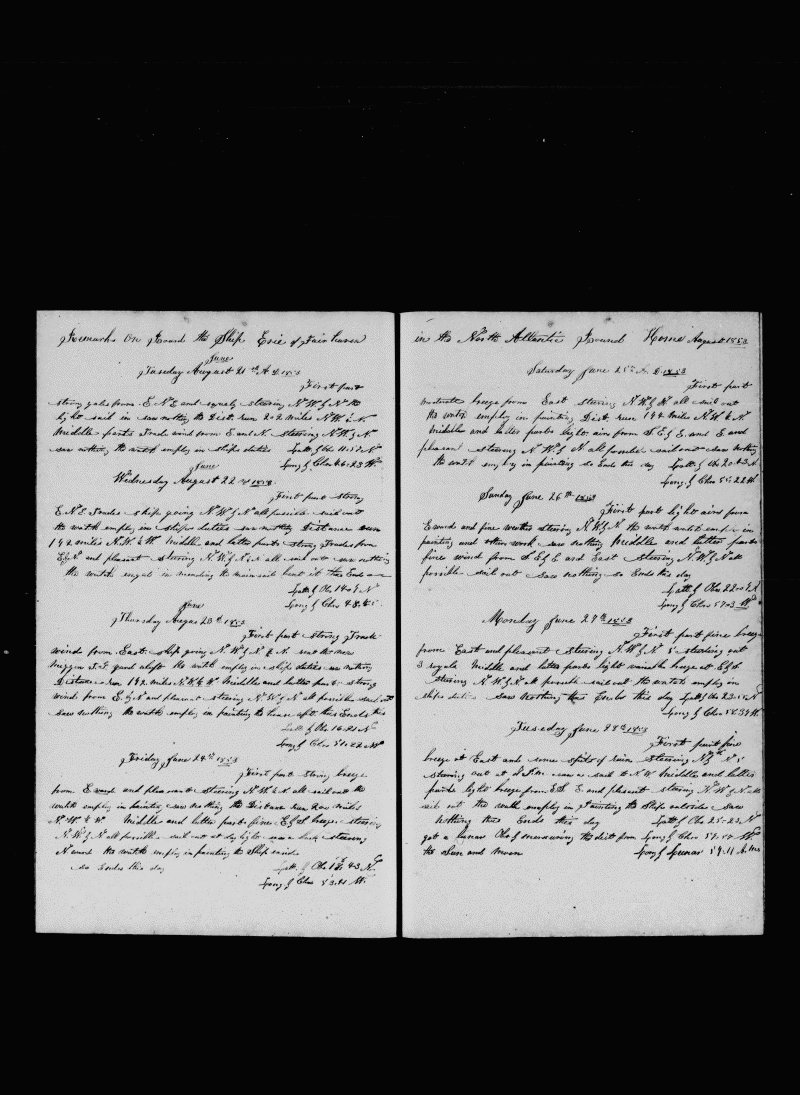 Remarks On Board the Ship Erie of Fairhaven
June
Tuesday August 21st A D 1853
First part
strong gales from E N E and squaly steering N W & N the
light sail in saw nothing the Dist run 202 miles N W & N
Middle parts Trade wind from E and N. steering N W & N
saw nothing the watch employ in ships duties Latt & Obs 11..57 N
Long & Chro 46..23 W
June
Wednesday August 22nd 1853
First part strong
E. N. E Trades ship going N. W & N all possible sail out
the watch employ in ships duties saw nothing Distance run
192 miles N. W & W Middle and latter parts strong Trades from
E & N and pleasant steering N. W & N all sail out saw nothing
the watch in mending the main sail bent it thus Ends
Latt & Obs 14..0 N
Long & Chro 48
June
Thursday August 23d 1853
First part strong Trade
winds from East ship going N. W & N sent the new
yard aloft the watch employ in ships duties saw nothing
Distance run 192 miles N. W & W Middle and latter parts strong
wind from E & N and pleasant steering N. W & N all possible sail out
saw nothing the watch employ in painting the house aft thus Ends this
Latt & Obs 16..21 N
Long & Chro 51..22 W
Friday June 24th 1853
First part strong breeze
from E ward and pleasant steering N. W & N all sail out the
watch employ in painting saw nothing the Distance run 200 miles
N. W & W Middle and latter part fine E & S breeze steering
N. W & N all possible sail out at day light saw a steering
N ward the watch employ in painting the Ship inside
so Ends this day Latt & Obs 43 N
Long & Chro 53..21 W
in the North Atlantic Bound Home August 1853
Saturday June 25th A. D. 1853
First part
moderate breeze from East steering N. W & N all sail out
the watch employ in painting Dist run 192 miles N. W & N
Middle and latter parts light airs from S. E & E and E and
pleasant steering N. W & N all possible sail out saw nothing
the watch employ in painting so Ends this day Latt & Obs 20..43 N
Long & Chro 55..22 W
Sunday June 26th 1853
First part light airs from
E ward and fine weather steering N. W & N the watch employ in
painting and other work saw nothing Middle and latter parts
fine wind from S. E & E and East steering N. W & N all
possible sail out saw nothing so Ends this day
Latt & Obs 22..0 N
Long & Chro 57..3 W
Monday June 27th 1853
First part fine breeze
from East and pleasant steering N. W & N studding out
3 royals Middle and latter parts light variable breeze at E & S
steering N. W & N all possible sail out the watch employ in
ships duties saw nothing thus Ends this day Latt & Obs 23..50 N
Long & Chro 58..39 W
Tuesday June 28th 1853
First part fine
breeze at East and some spits of rain steering N
at 2 P. M. saw a sail to N. W Middle and latter
parts light breeze from E & S E and pleasant steering N. W & N all
sail out the watch employ in Painting the Ship outside saw
Nothing thus Ends this day Latt & Obs 25..23 N
got a Lunar Obs & measuring the dist from Long & Chro 59..57 W
the Sun and moon Long & Lunar 59..11